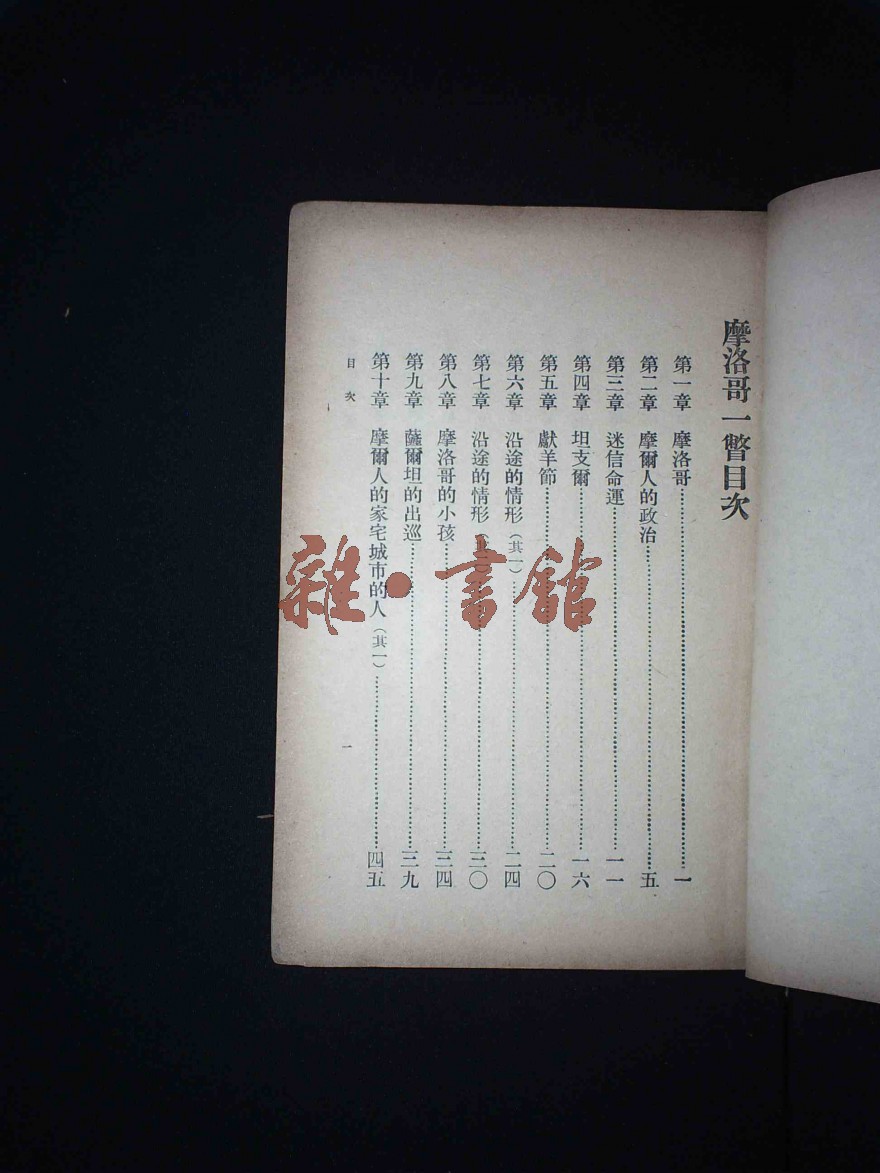 摩洛哥一瞥目次
第一章 摩洛哥……一
第二章 摩爾人的政治……五
第三章 迷信命運……一一
第四章 坦支爾……一六
第五章 獻羊節……二〇
第六章 沿途的情形（其一）……二四
第七章 沿途的情形（其二）……三〇
第八章 摩洛哥的小孩……三四
第九章 薩爾坦的出巡……三九
第十章 摩爾人的家宅城市的人（其一）……四五
目次 一
雜·書館